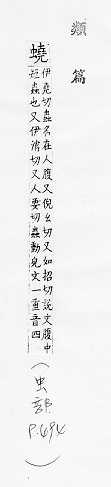 類篇
蟯
伊堯切蟲名在人腹又倪幺切又如招切說文腹中
短蟲也又伊消切又人要切蟲動皃文一重音四
(虫部 P.494)